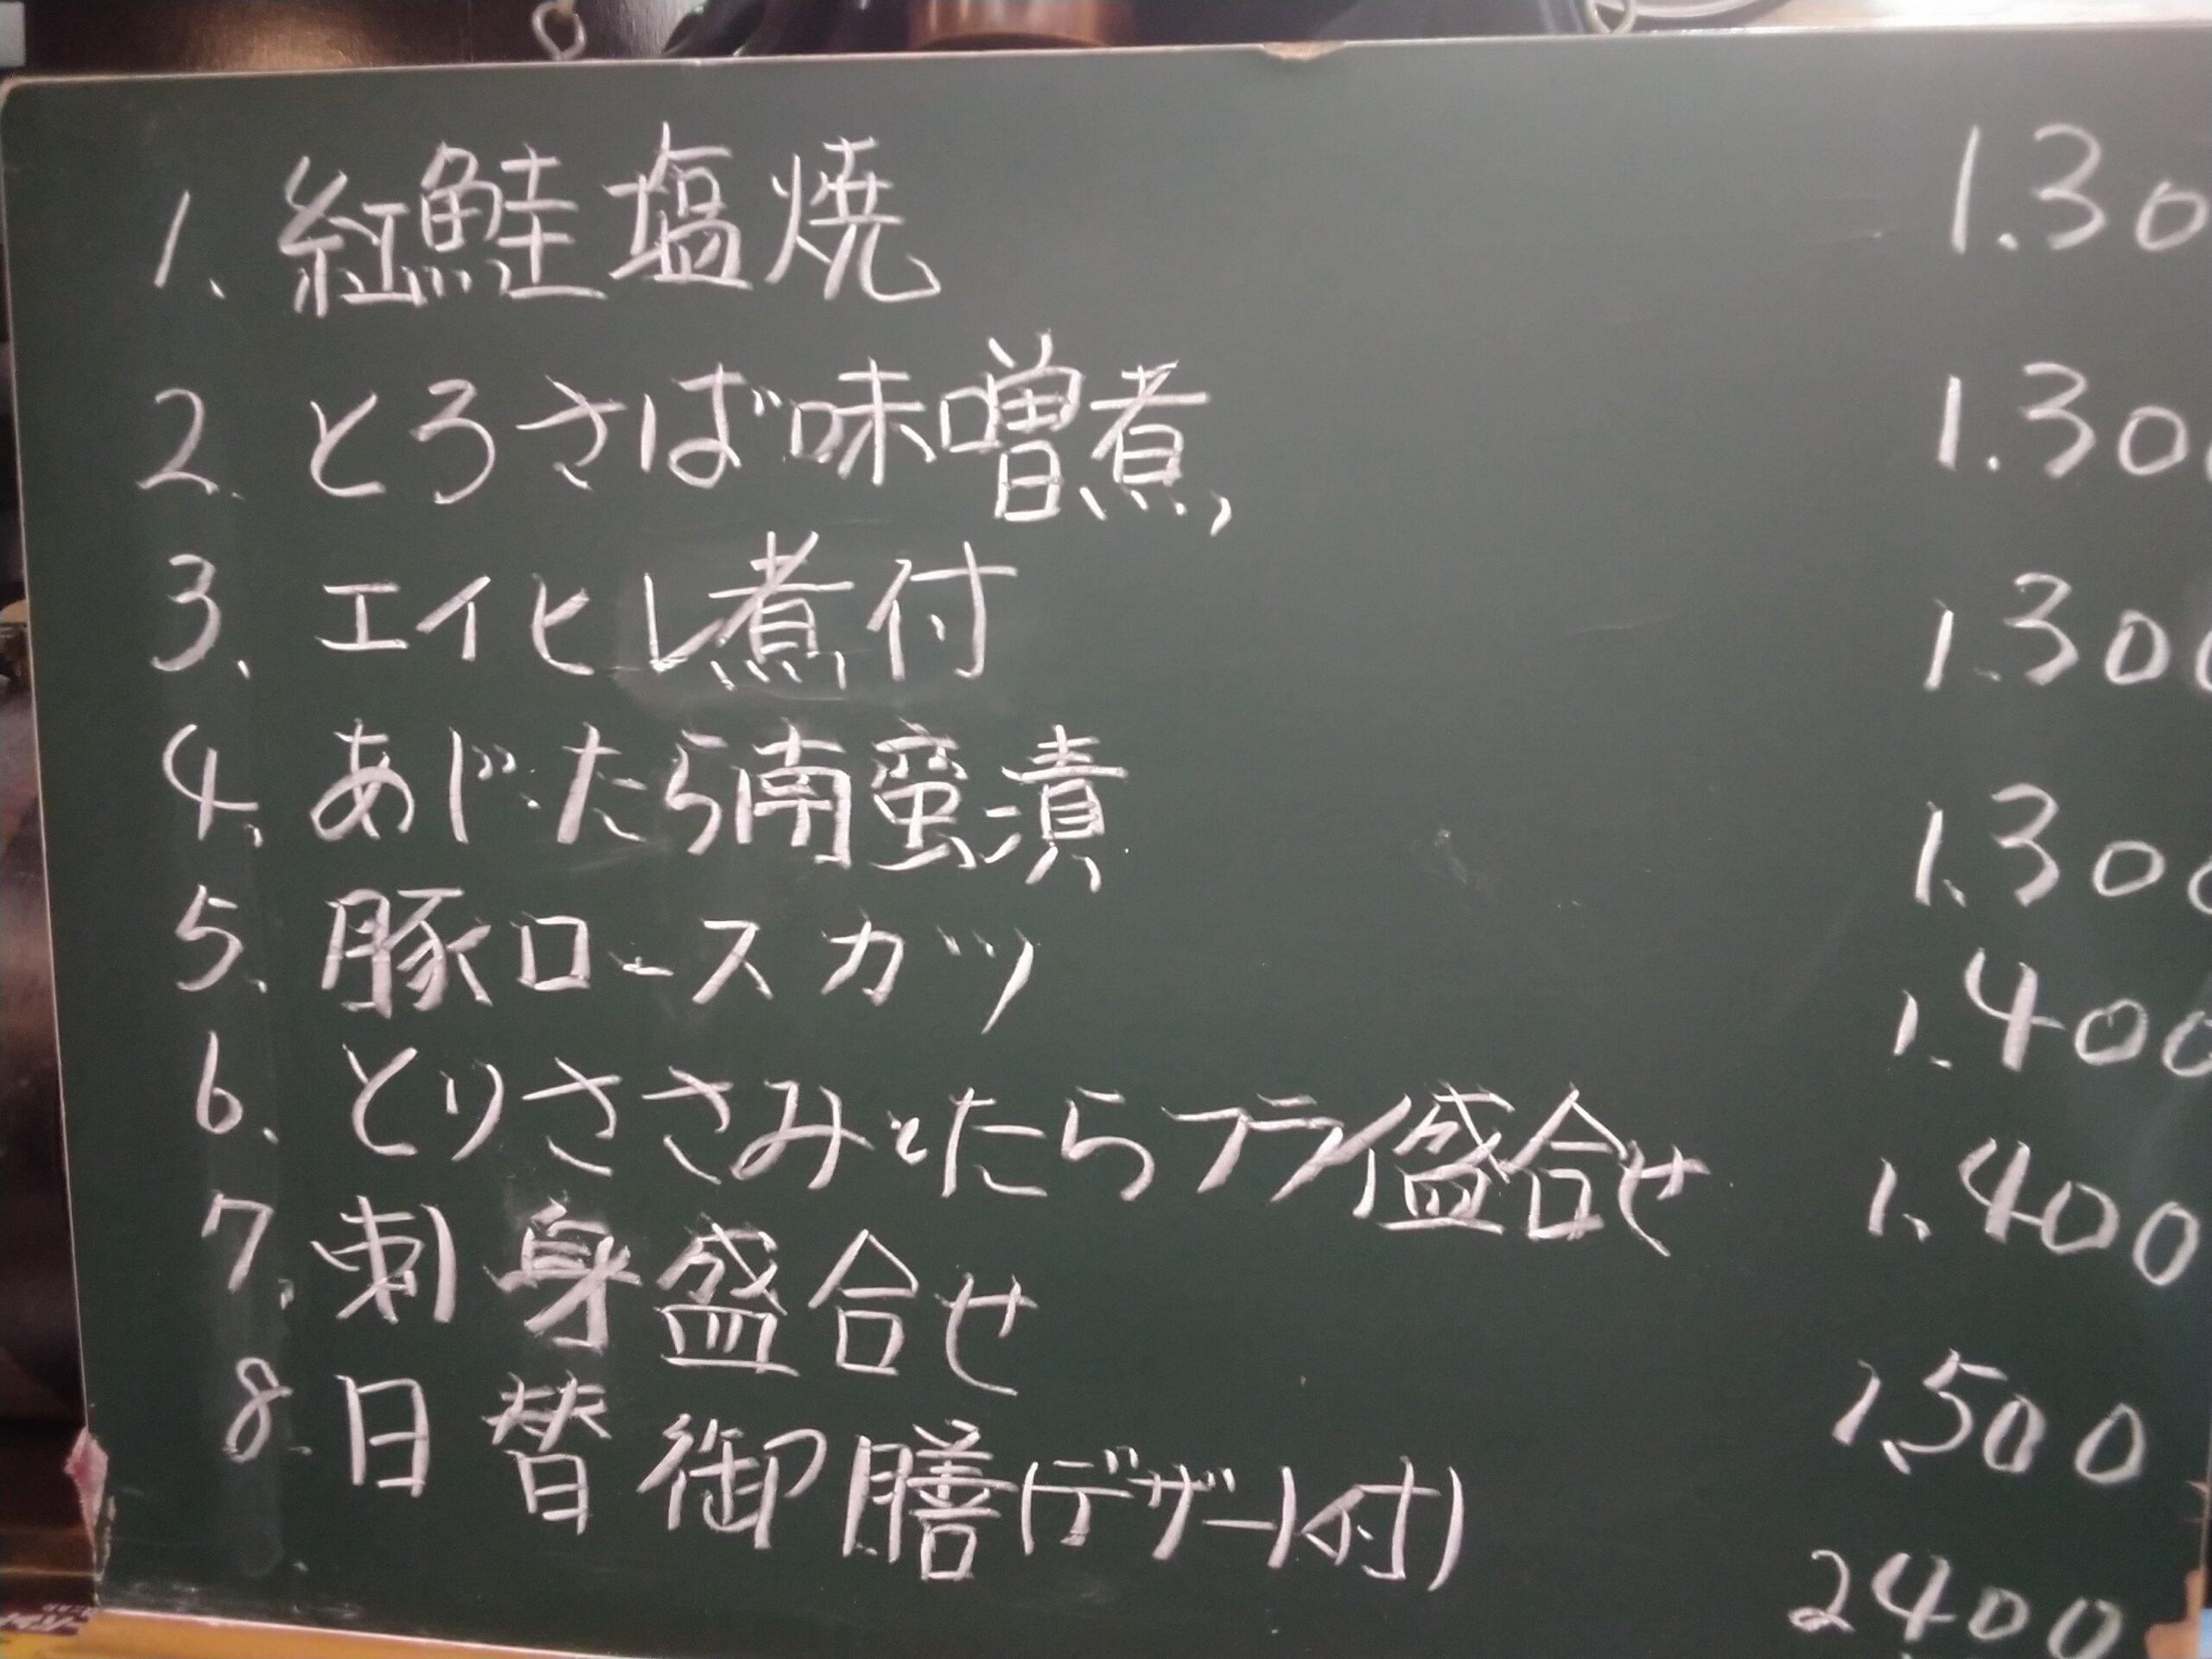 1. 紅鮭塩焼 1.30
2. とろさば味噌煮 1.300
3. エイヒレ煮付 1.300
4. あじ・たら南蛮漬 1.300
5. 豚ロースカツ 1.400
6. とりささみとたらフライ盛合せ 1.400
7. 刺身盛合せ 1,500
8. 日替御膳(デザート付) 2400